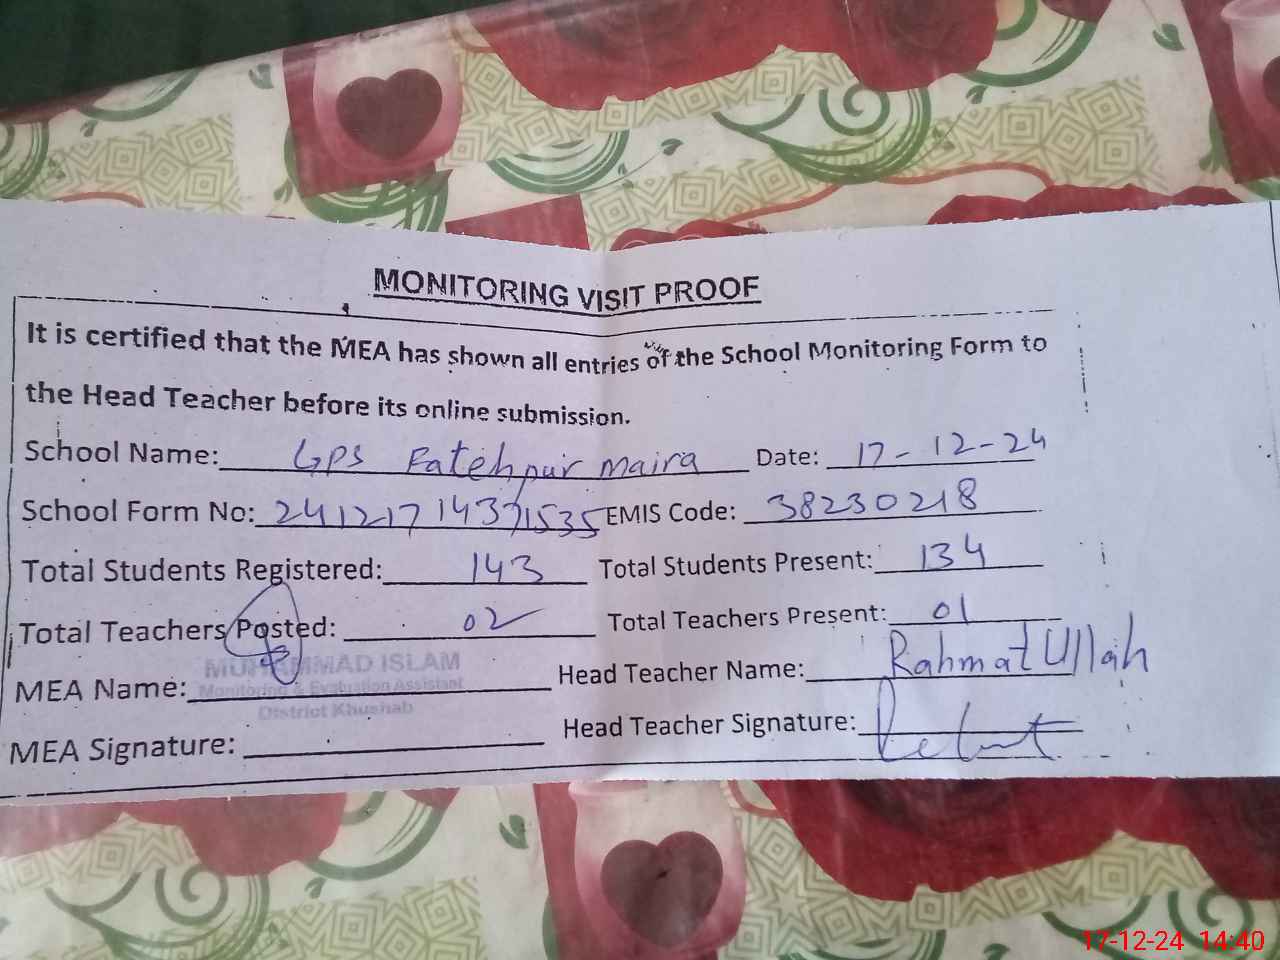 MONITORING VISIT PROOF
It is certified that the MEA has shown all entries of the School Monitoring Form to
the Head Teacher before its online submission.
School Name: GPS Fatehpur maira Date: 17-12-24
School Form No: 24121714371535 EMIS Code: 38230218
Total Students Registered: 143 Total Students Present: 134
Total Teachers Posted: 02 Total Teachers Present: 01
MEA Name: MUHAMMAD ISLAM Head Teacher Name: Rahmat Ullah
Monitoring & Evaluation Assistant
District Khushab
MEA Signature: Head Teacher Signature:
17-12-24 14:40